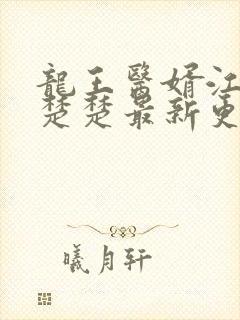 龍王醫婿江
楚楚最新更
曦月轩